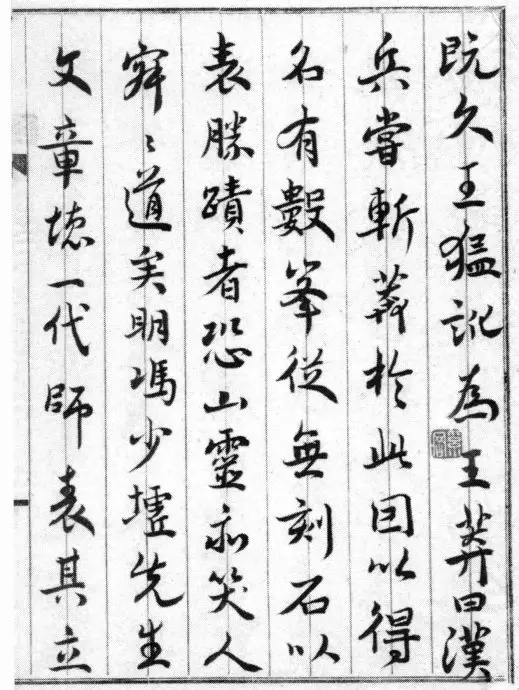 既久王猛訛為王莽曰漢
兵嘗斬莽於此因以得
名有數峯從無刻石以
表勝蹟者恐山靈亦笑人
寂〻道矣明馮少墟先生
文章德一代師表其立